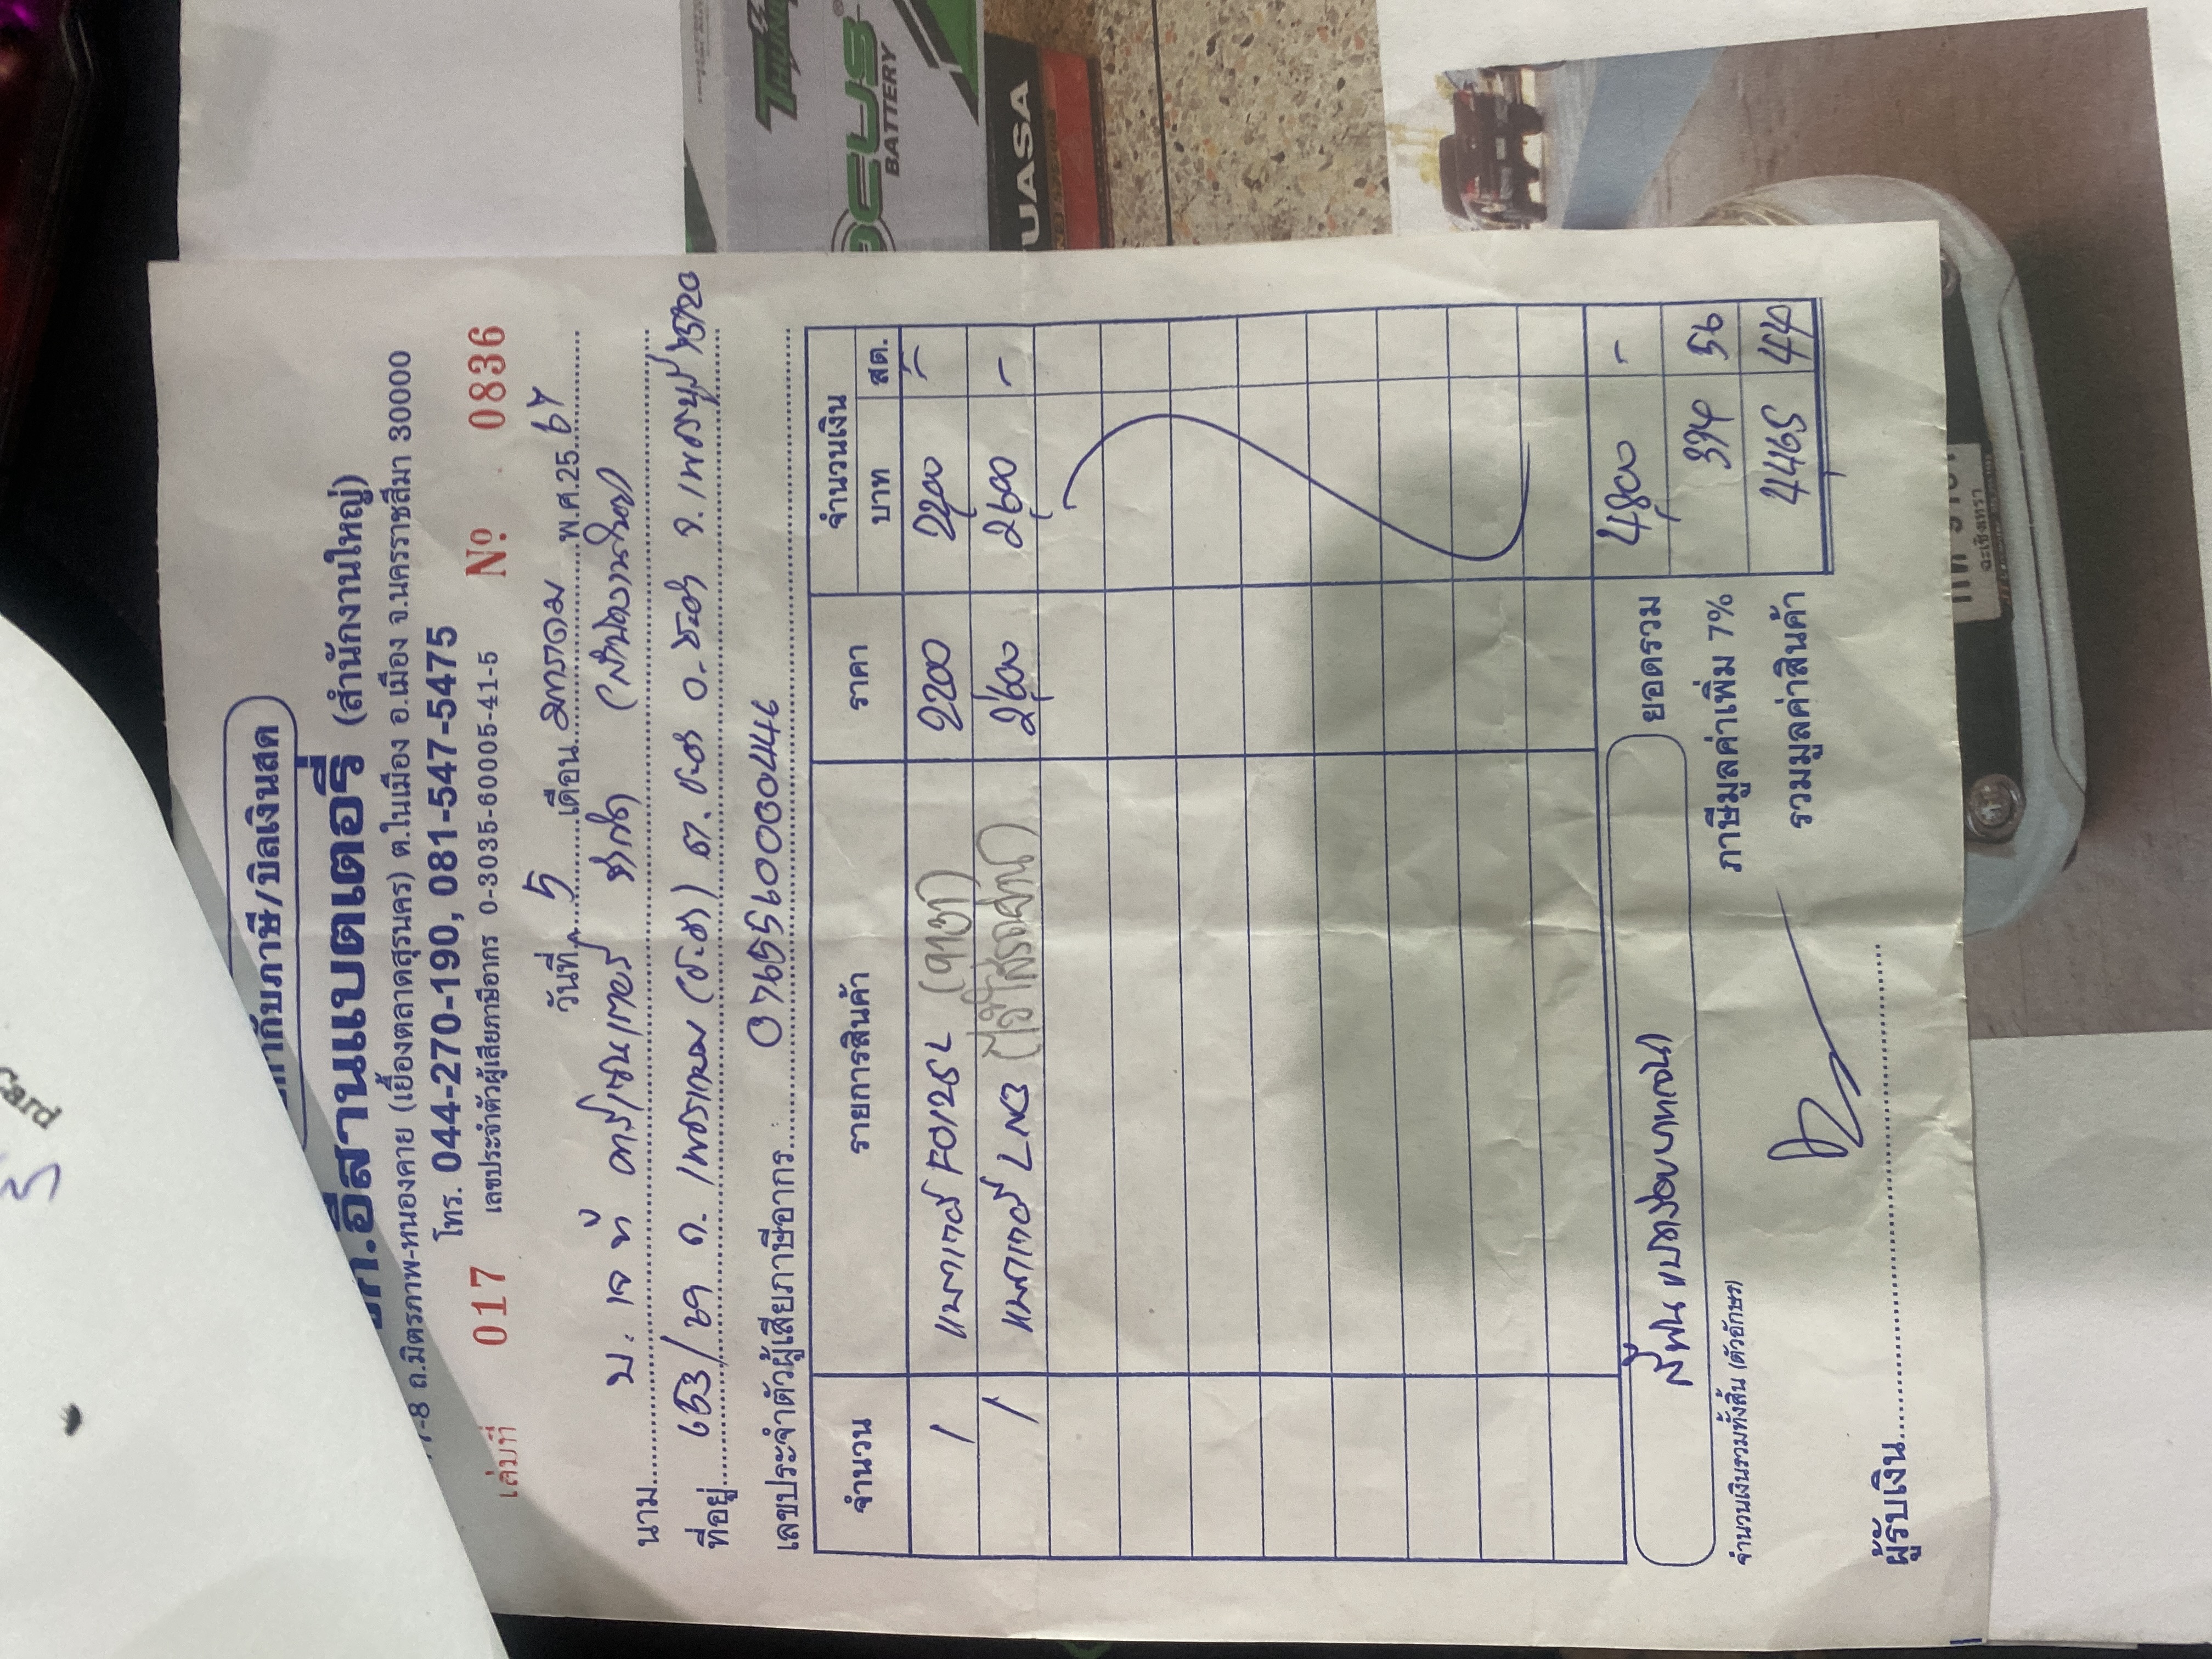 กำกับภาษี/บิลเงินสด
หก.อีสานแบตเตอรี่ (สำนักงานใหญ่)
-8 ถ.มิตรภาพ-หนองคาย (เยื้องตลาดสุรนคร) ต.ในเมือง อ.เมือง จ.นครราชสีมา 30000
โทร. 044-270-190, 081-547-5475
เล่มที่ 017 เลขประจำตัวผู้เสียภาษีอากร 0-3035-60005-41-5 Nº 0836
วันที่ 5 เดือน มกราคม พ.ศ.25 67
นาม บ. เจ ที คาร์เซนเตอร์ จำกัด (สำนักงานใหญ่)
ที่อยู่ 653/ ถ. เพชรเกษม (ชะอำ) ต. ชะอำ อ. ชะอำ จ. เพชรบุรี 76120
เลขประจำตัวผู้เสียภาษีอากร 0765560000446
จำนวน รายการสินค้า ราคา จำนวนเงิน
บาท สต.
1 แบตเตอรี่ FO125L (ขาว) 2200 2200 -
1 แบตเตอรี่ LN3 2600 2600 -
ยอดรวม 4800 -
สี่พันแปดร้อยบาทถ้วน
ภาษีมูลค่าเพิ่ม 7% 334 56
จำนวนเงินรวมทั้งสิ้น (ตัวอักษร)
รวมมูลค่าสินค้า 4465 44
ผู้รับเงิน
THUN
OCUS
BATTERY
UASA
ฉะเชิงเทรา
Card